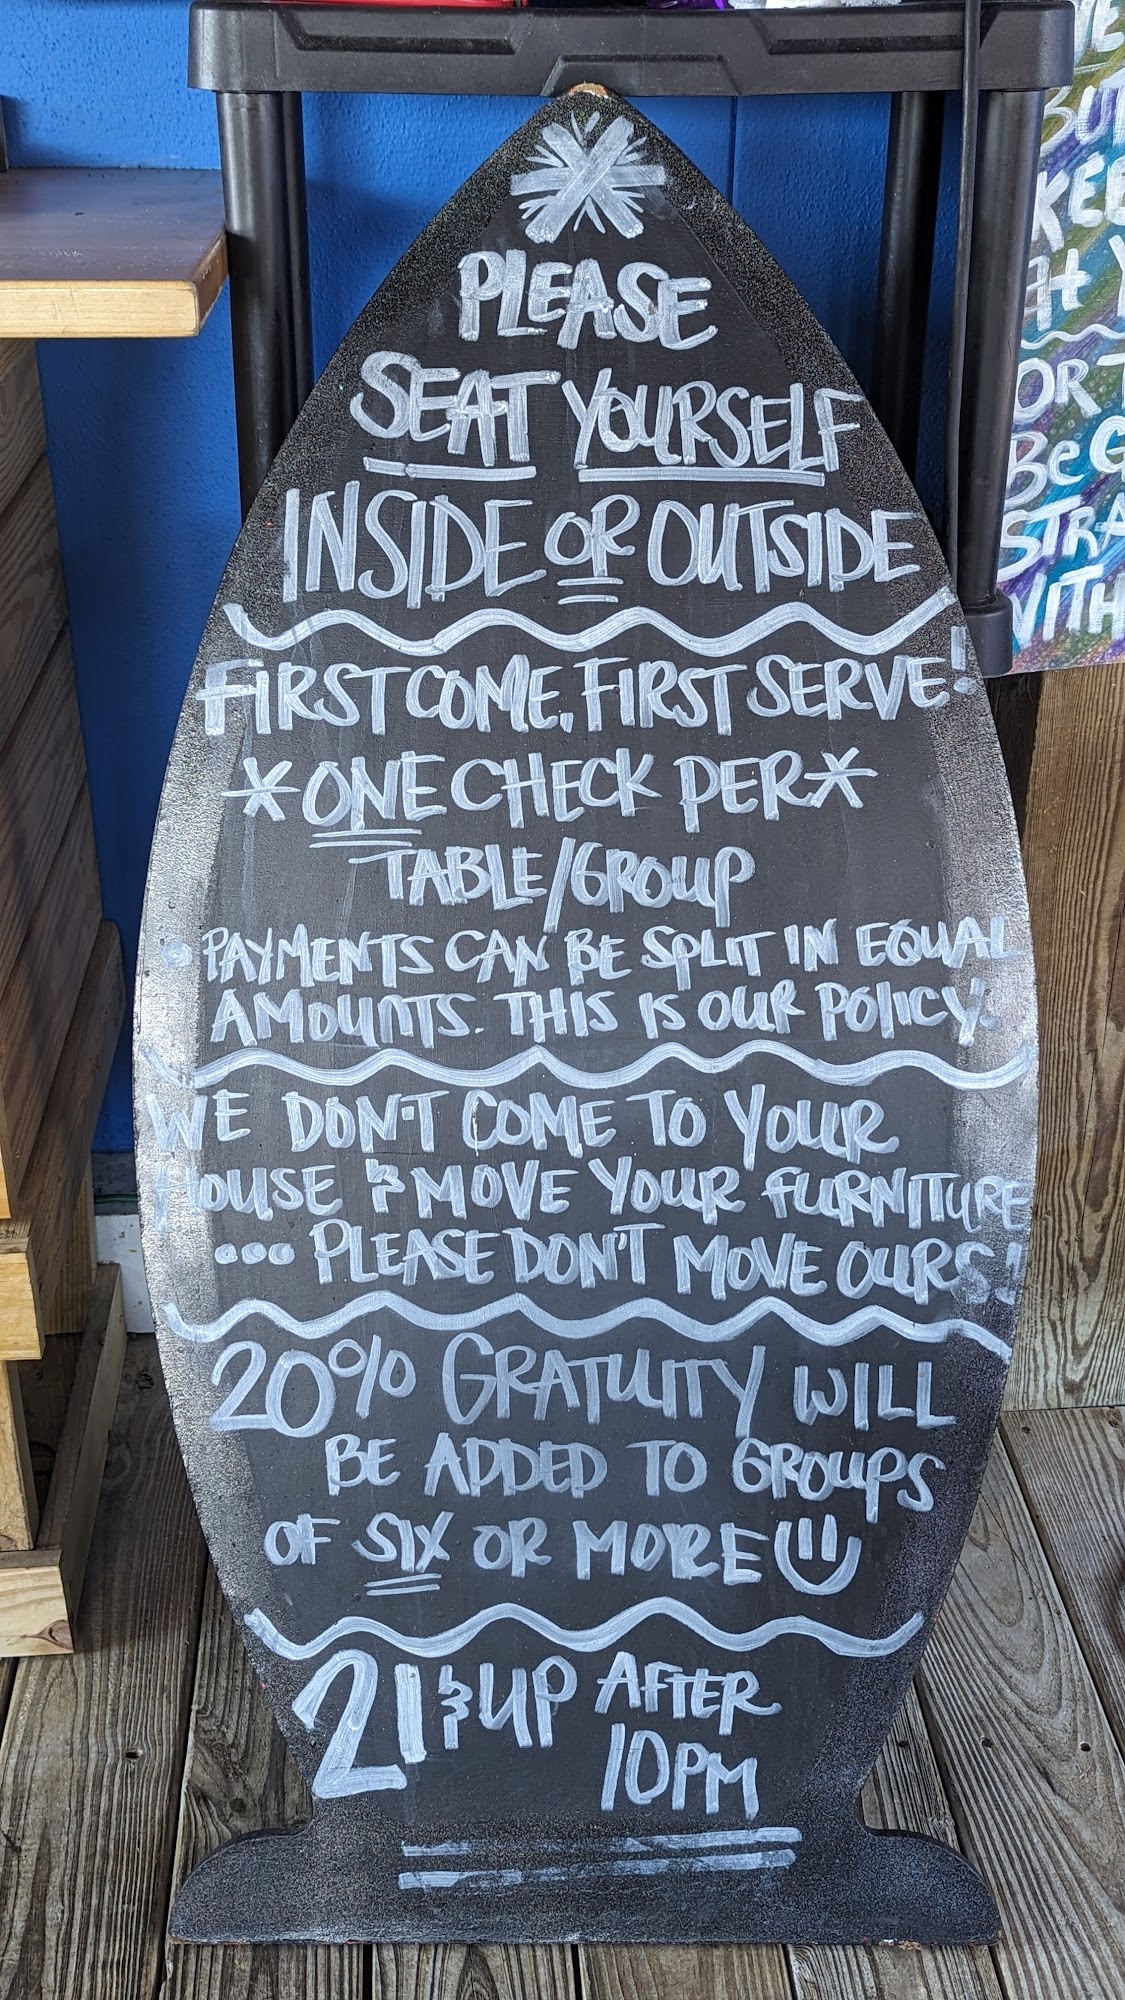 PLEASE
SEAT YOURSELF
INSIDE OR OUTSIDE
FIRST COME, FIRST SERVE!
*ONE CHECK PER*
TABLE/GROUP
• PAYMENTS CAN BE SPLIT IN EQUAL
AMOUNTS. THIS IS OUR POLICY.
WE DON'T COME TO YOUR
HOUSE & MOVE YOUR FURNITURE
... PLEASE DON'T MOVE OURS!
20% GRATUITY WILL
BE ADDED TO GROUPS
OF SIX OR MORE
21 & UP AFTER
10PM
KEE
At
OR
Be
STRA
WITH